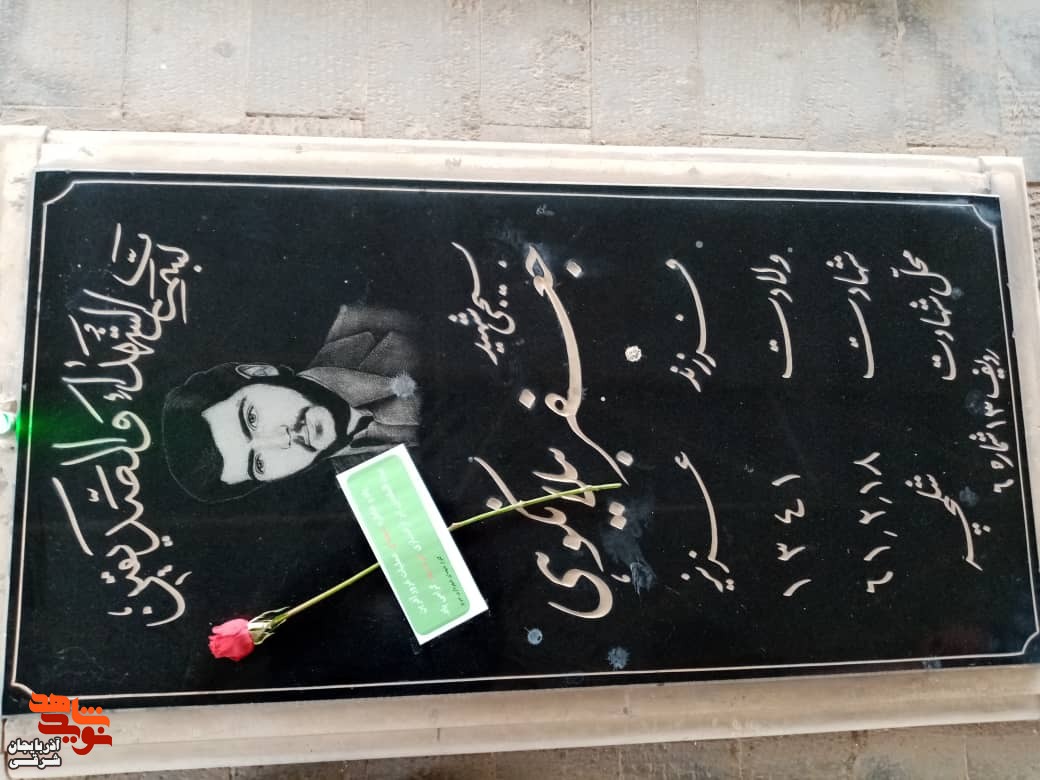 بسم رب الشهداء والصدیقین
بسیجی شهید
جعفر بیلانکوهی
فرزند عزیز
ولادت ۱۳۴۱
شهادت ۶۱/۲/۱۸
محل شهادت شلمچه
ردیف ۱۳ شماره ۶
نوید شاهد
آذربایجان
شرقی